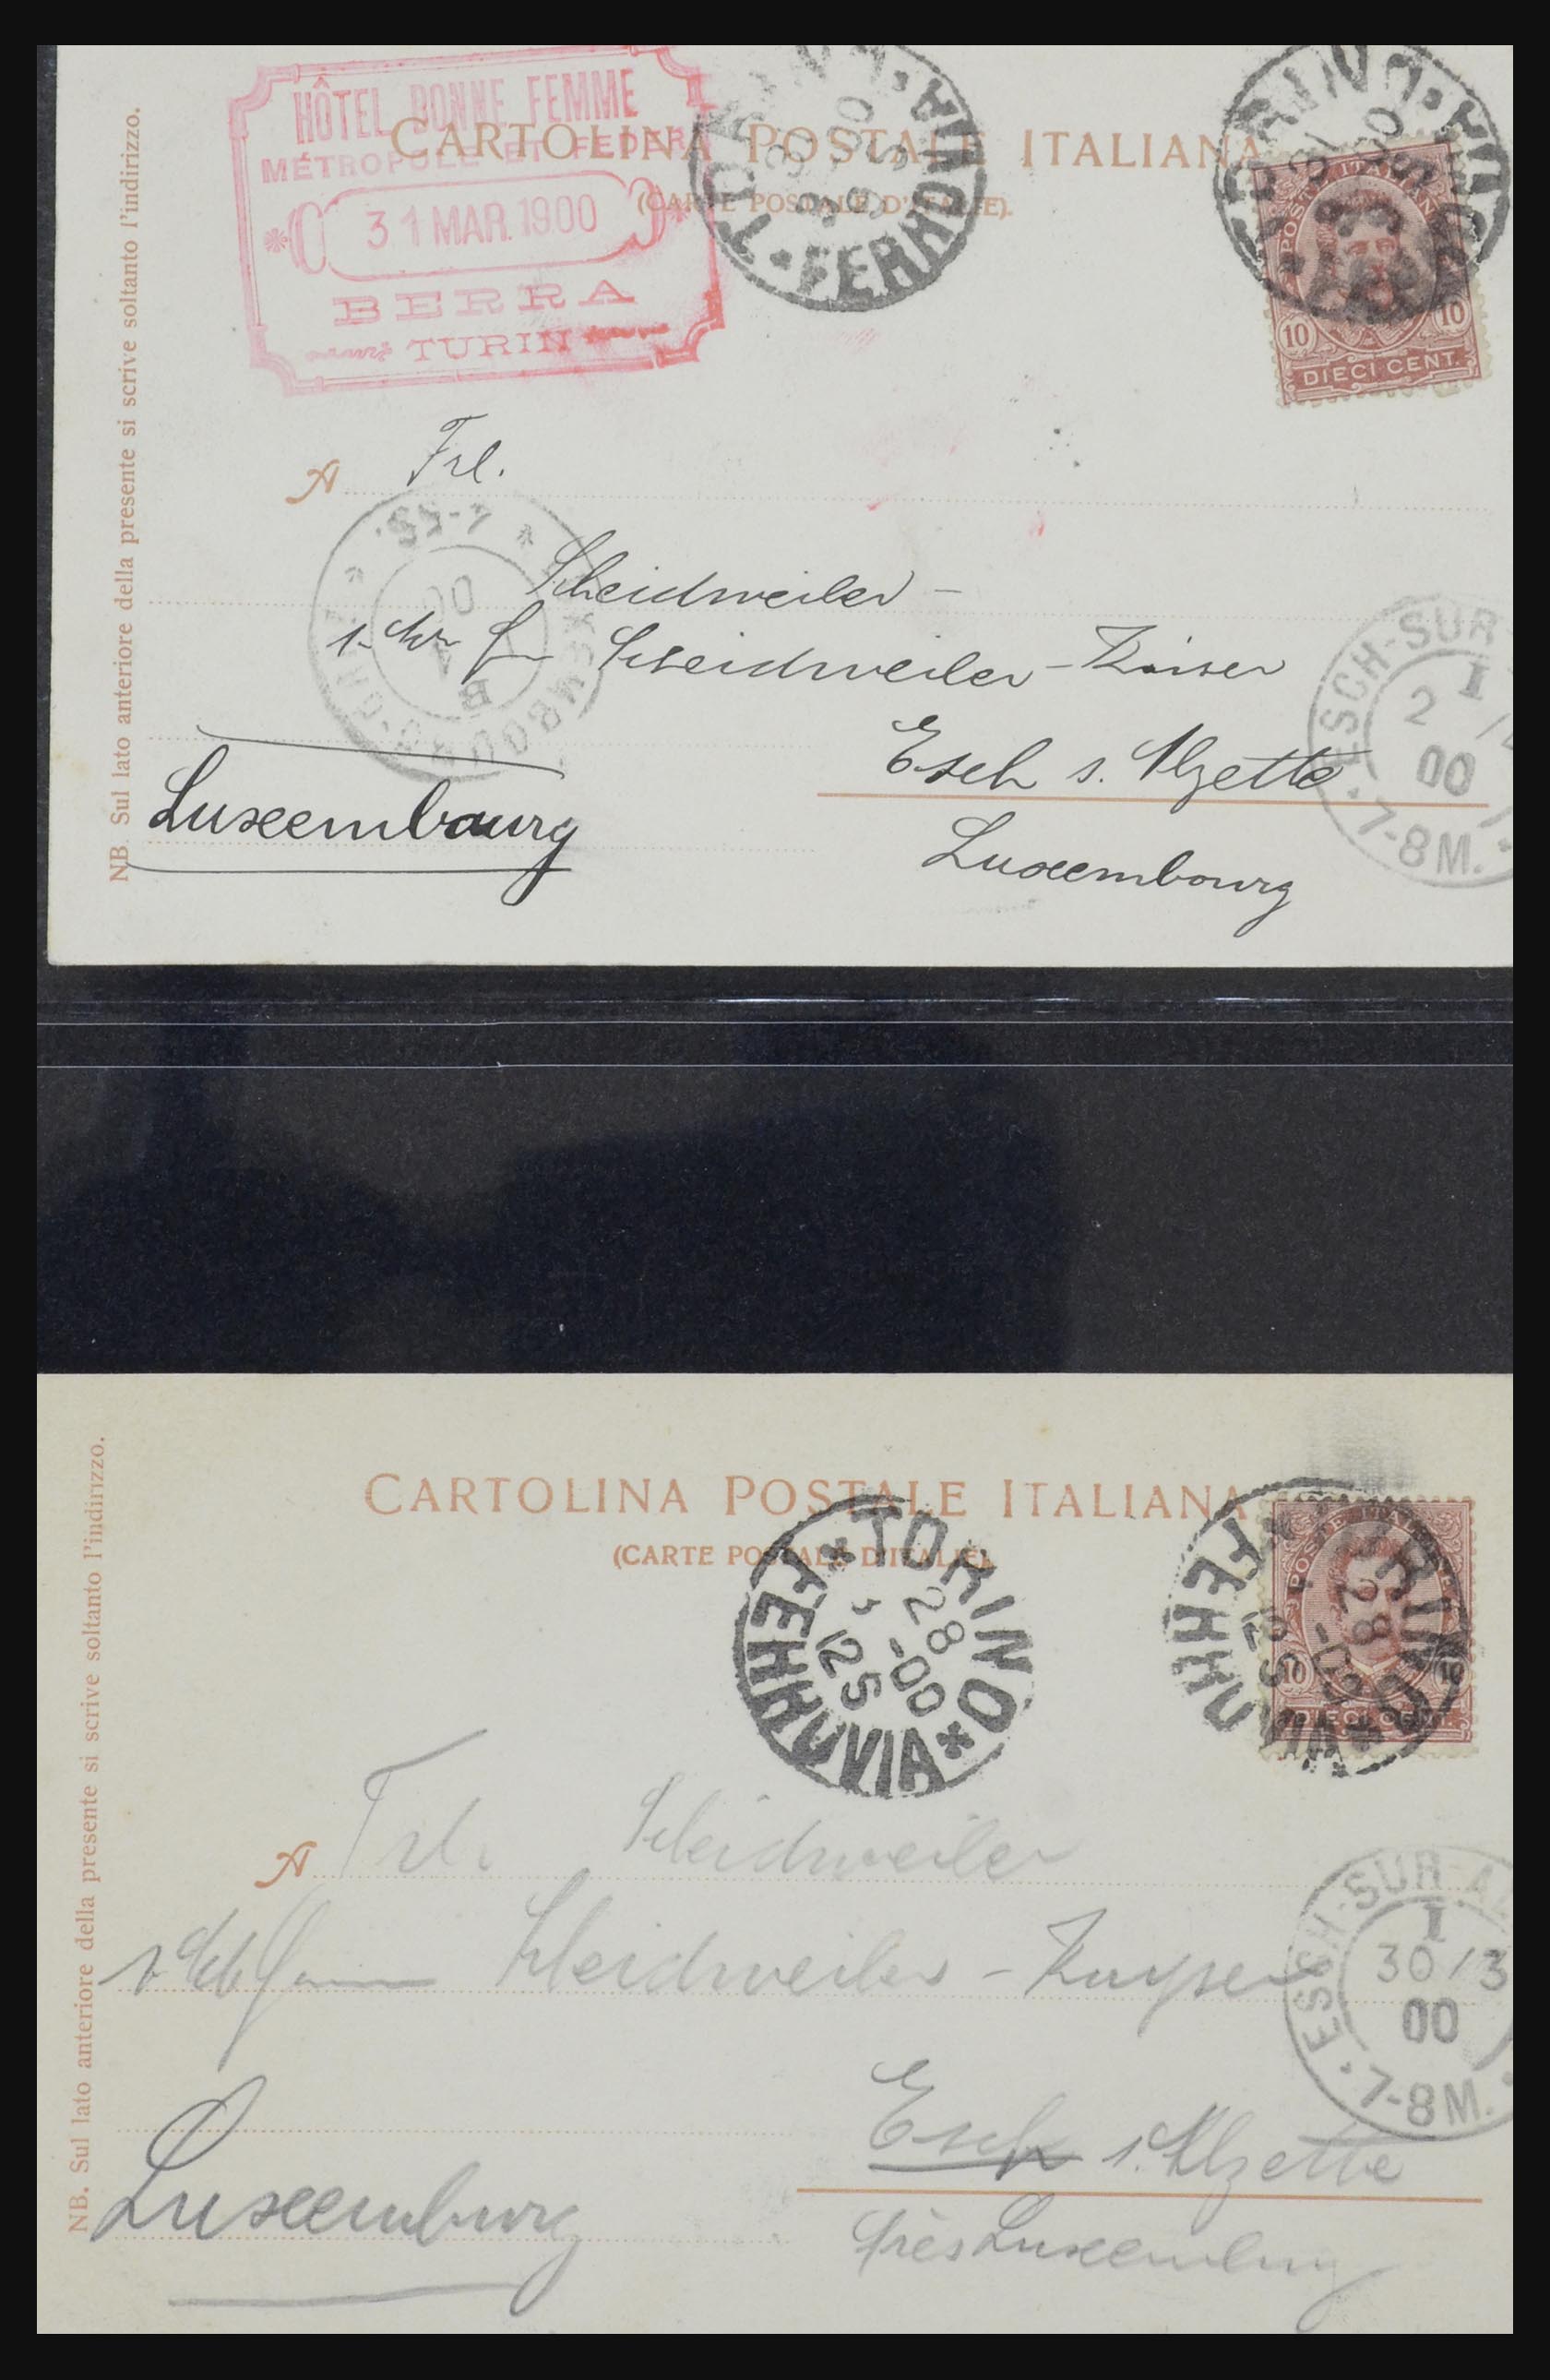 HÔTEL BONNE FEMME
MÉTROPOLE ET FEDER
31 MAR. 1900
BERRA
TURIN
CARTOLINA POSTALE ITALIANA
(CARTE POSTALE D'ITALIE).
TORINO
FERROVIA
POSTE ITALIANE
10 10
DIECI CENT.
NB. Sul lato anteriore della presente si scrive soltanto l'indirizzo.
A Frl.
Scheidweiler -
Scheidweiler - Kaiser
Esch s. Alzette
Luxembourg
Luxembourg
ESCH-SUR
I
2
00
7-8M.
CARTOLINA POSTALE ITALIANA
(CARTE POSTALE D'ITALIE).
TORINO
FERROVIA
28
-00
12S
POSTE ITALIANE
10 10
DIECI CENT.
NB. Sul lato anteriore della presente si scrive soltanto l'indirizzo.
A Frl. Scheidweiler
Scheidweiler - Kayser
Esch s. Alzette
près Luxemburg
Luxemburg
ESCH-SUR-AL
I
30/3
00
7-8M.